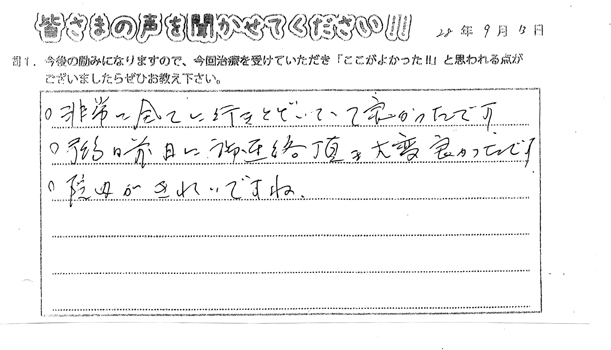 皆さまの声を聞かせてください!!! 28年9月15日
問1. 今後の励みになりますので、今回治療を受けていただき「ここがよかった!!」と思われる点が
ございましたらぜひお教え下さい。
○非常に全てに行きとどいていて良かったです
○予約日前日に御連絡頂き大変良かったです
○院内がきれいですね。